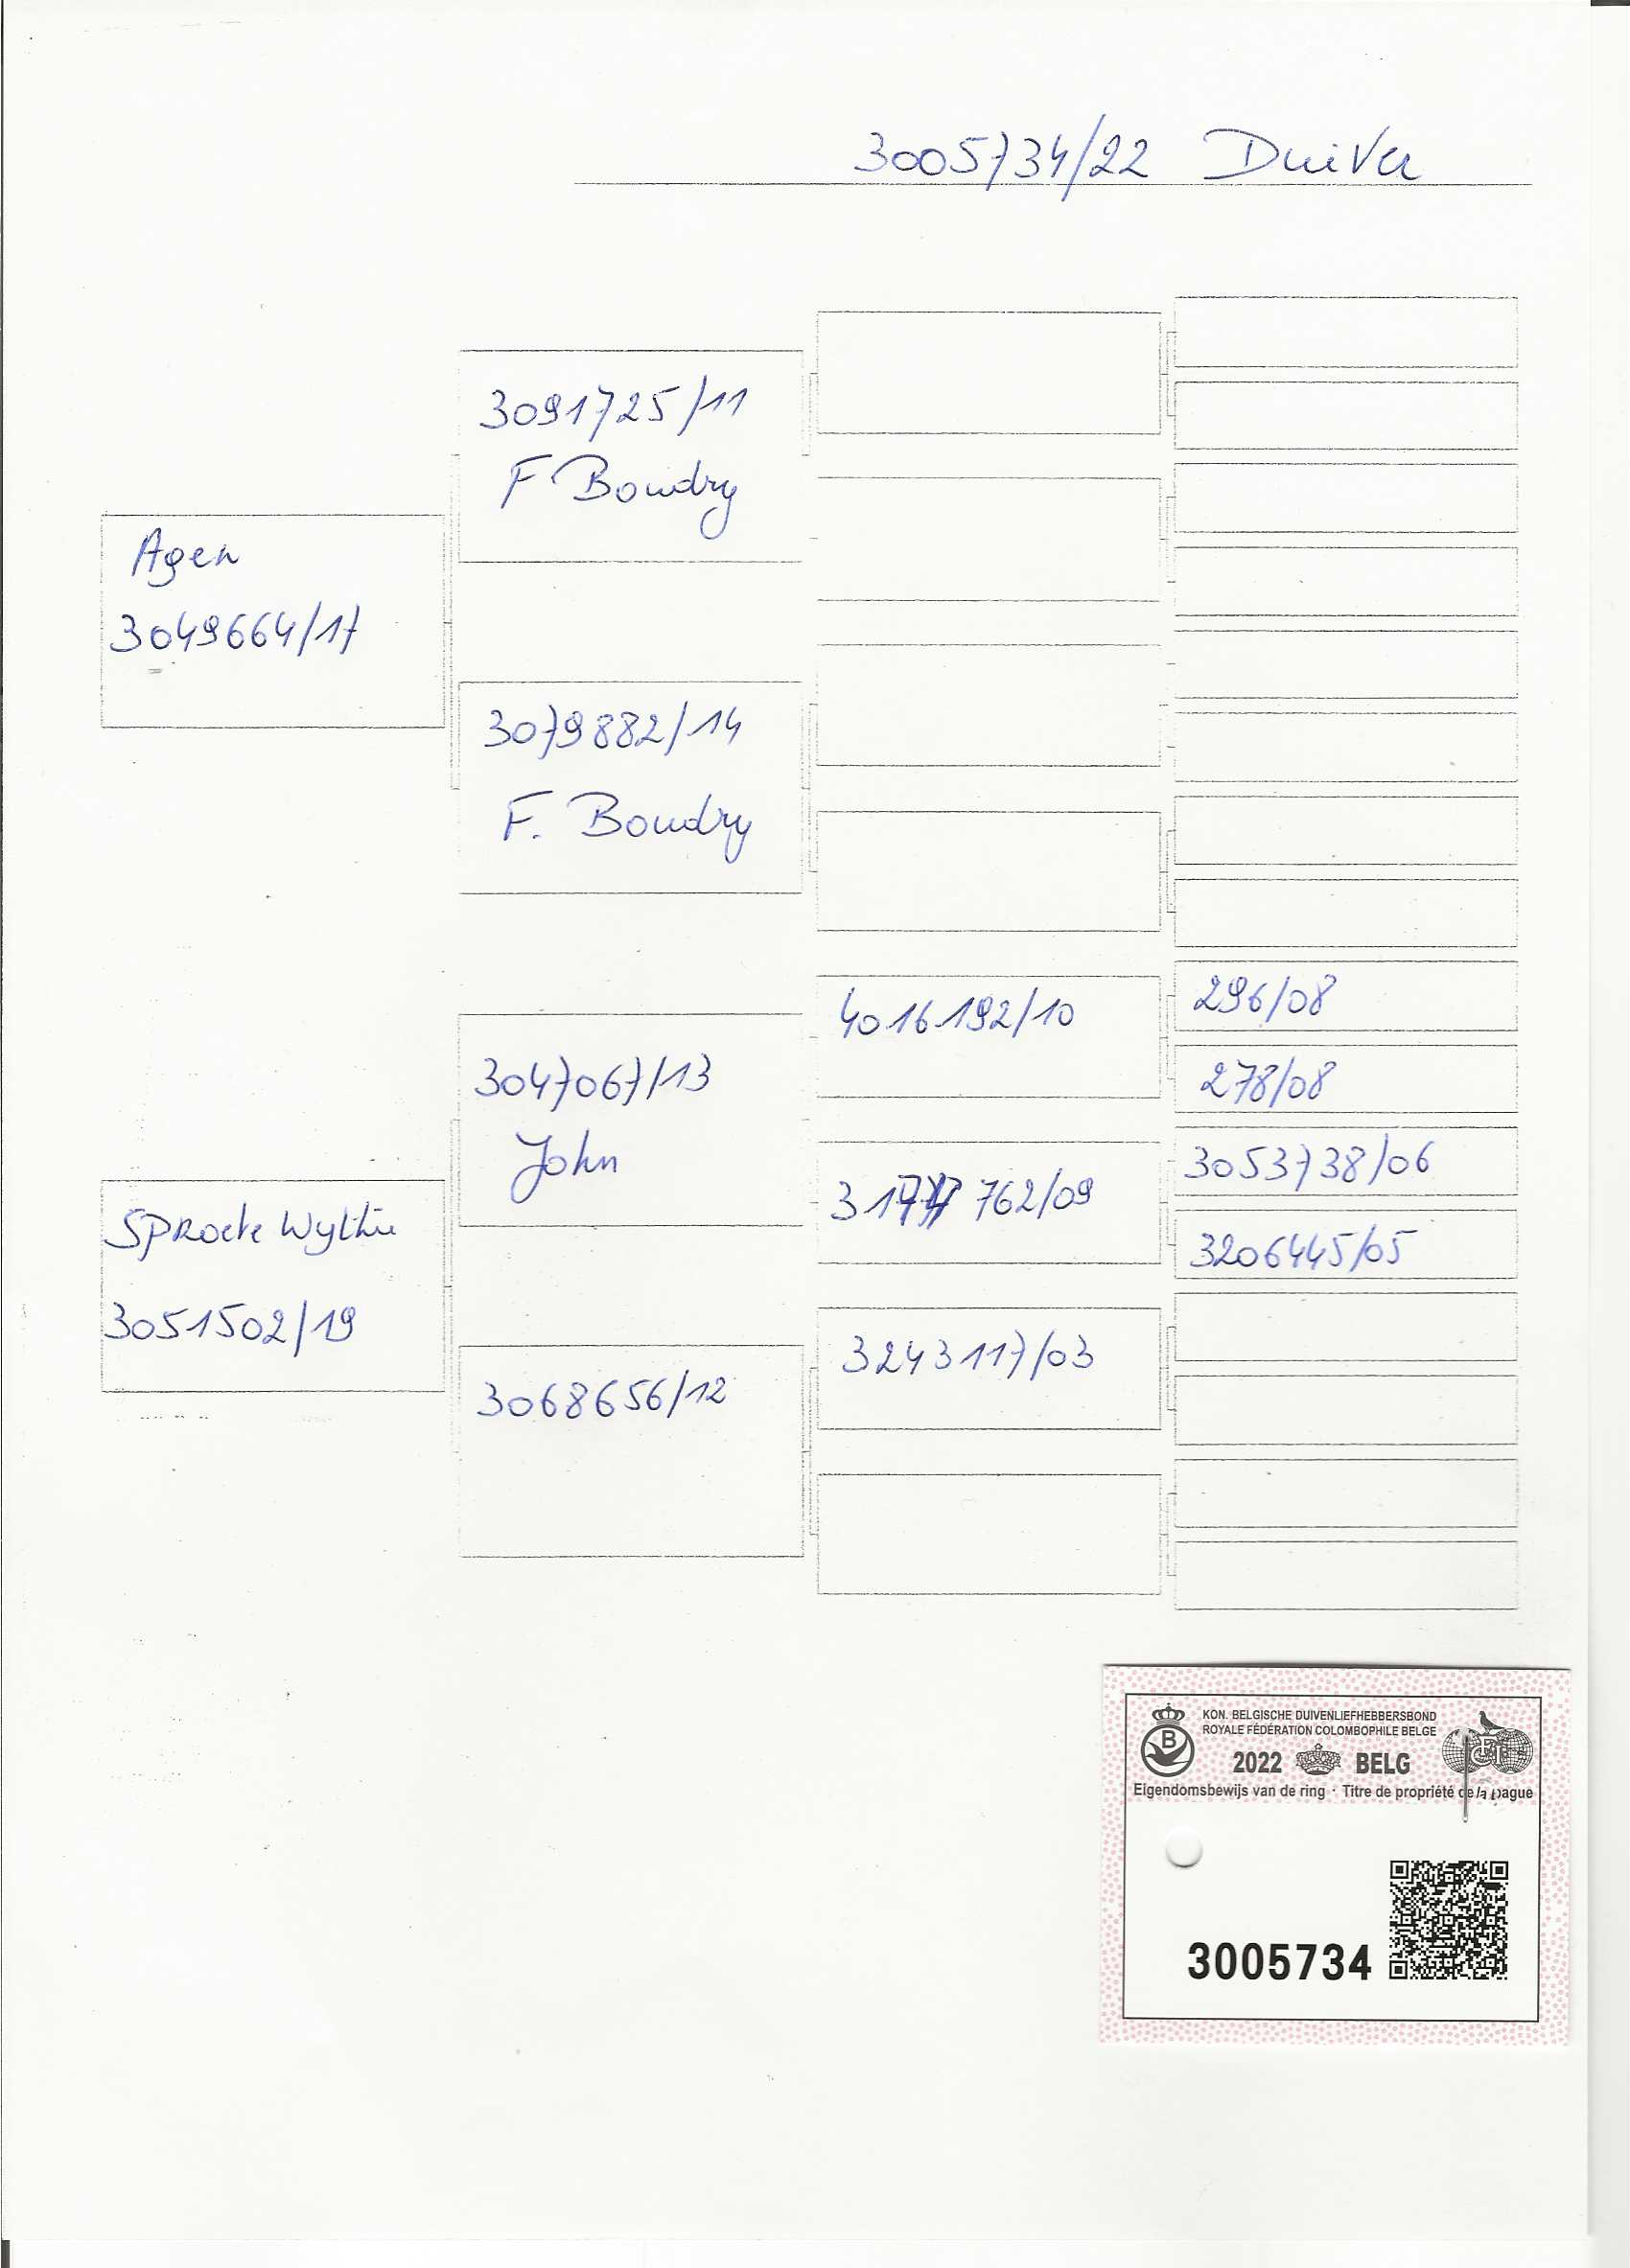 3005734/22 Duiver
3091725/11
F Boudry
Agen
3049664/17
3079882/14
F. Boudry
4016192/10
296/08
278/08
3047067/13
John
3053738/06
762/09
3206445/05
3051502/19
3243117/03
3068656/12
KON. BELGISCHE DUIVENLIEFHEBBERSBOND
ROYALE FÉDÉRATION COLOMBOPHILE BELGE
B
FCI
2022 BELG
Eigendomsbewijs van de ring · Titre de propriété de la bague
3005734